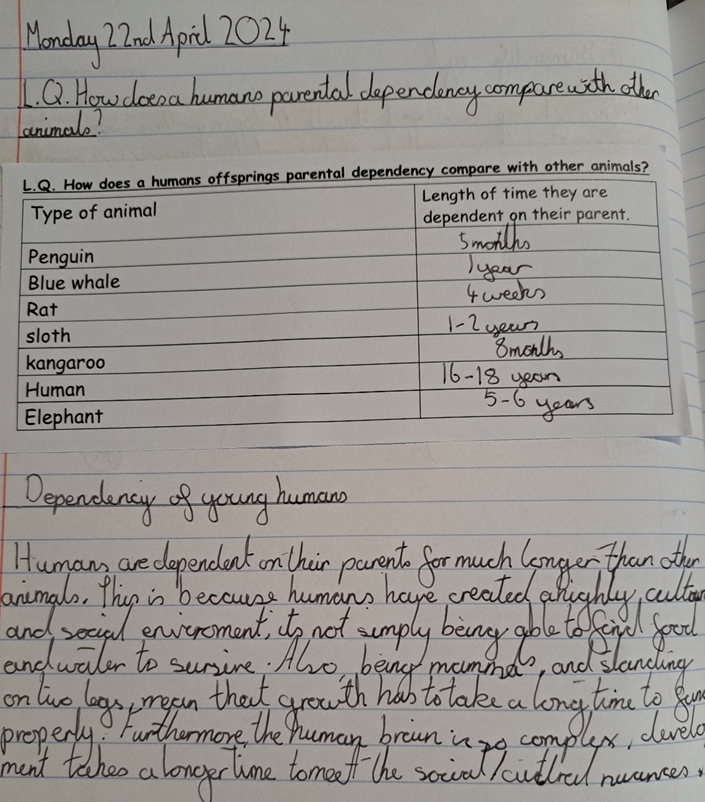 Monday 22nd April 2024
L.Q. How does a humans parental dependency compare with other
animals?
L.Q. How does a humans offsprings parental dependency compare with other animals?
Type of animal
Length of time they are
dependent on their parent.
Penguin 5 months
Blue whale 1 year
Rat 4 weeks
sloth 1-2 years
kangaroo 8 months
Human 16-18 years
Elephant 5-6 years
Dependency of young humans
Humans are dependent on their parents for much longer than other
animals. This is because humans have created a highly, cultur
and social enviroment, its not simply being able to find food
and water to survive. Also, being mammals, and standing
on two legs, mean that growth has to take a long time to
properly. Furthermore, the human brain is so complex, develo
ment takes a longer time to meet the social/ nuances.